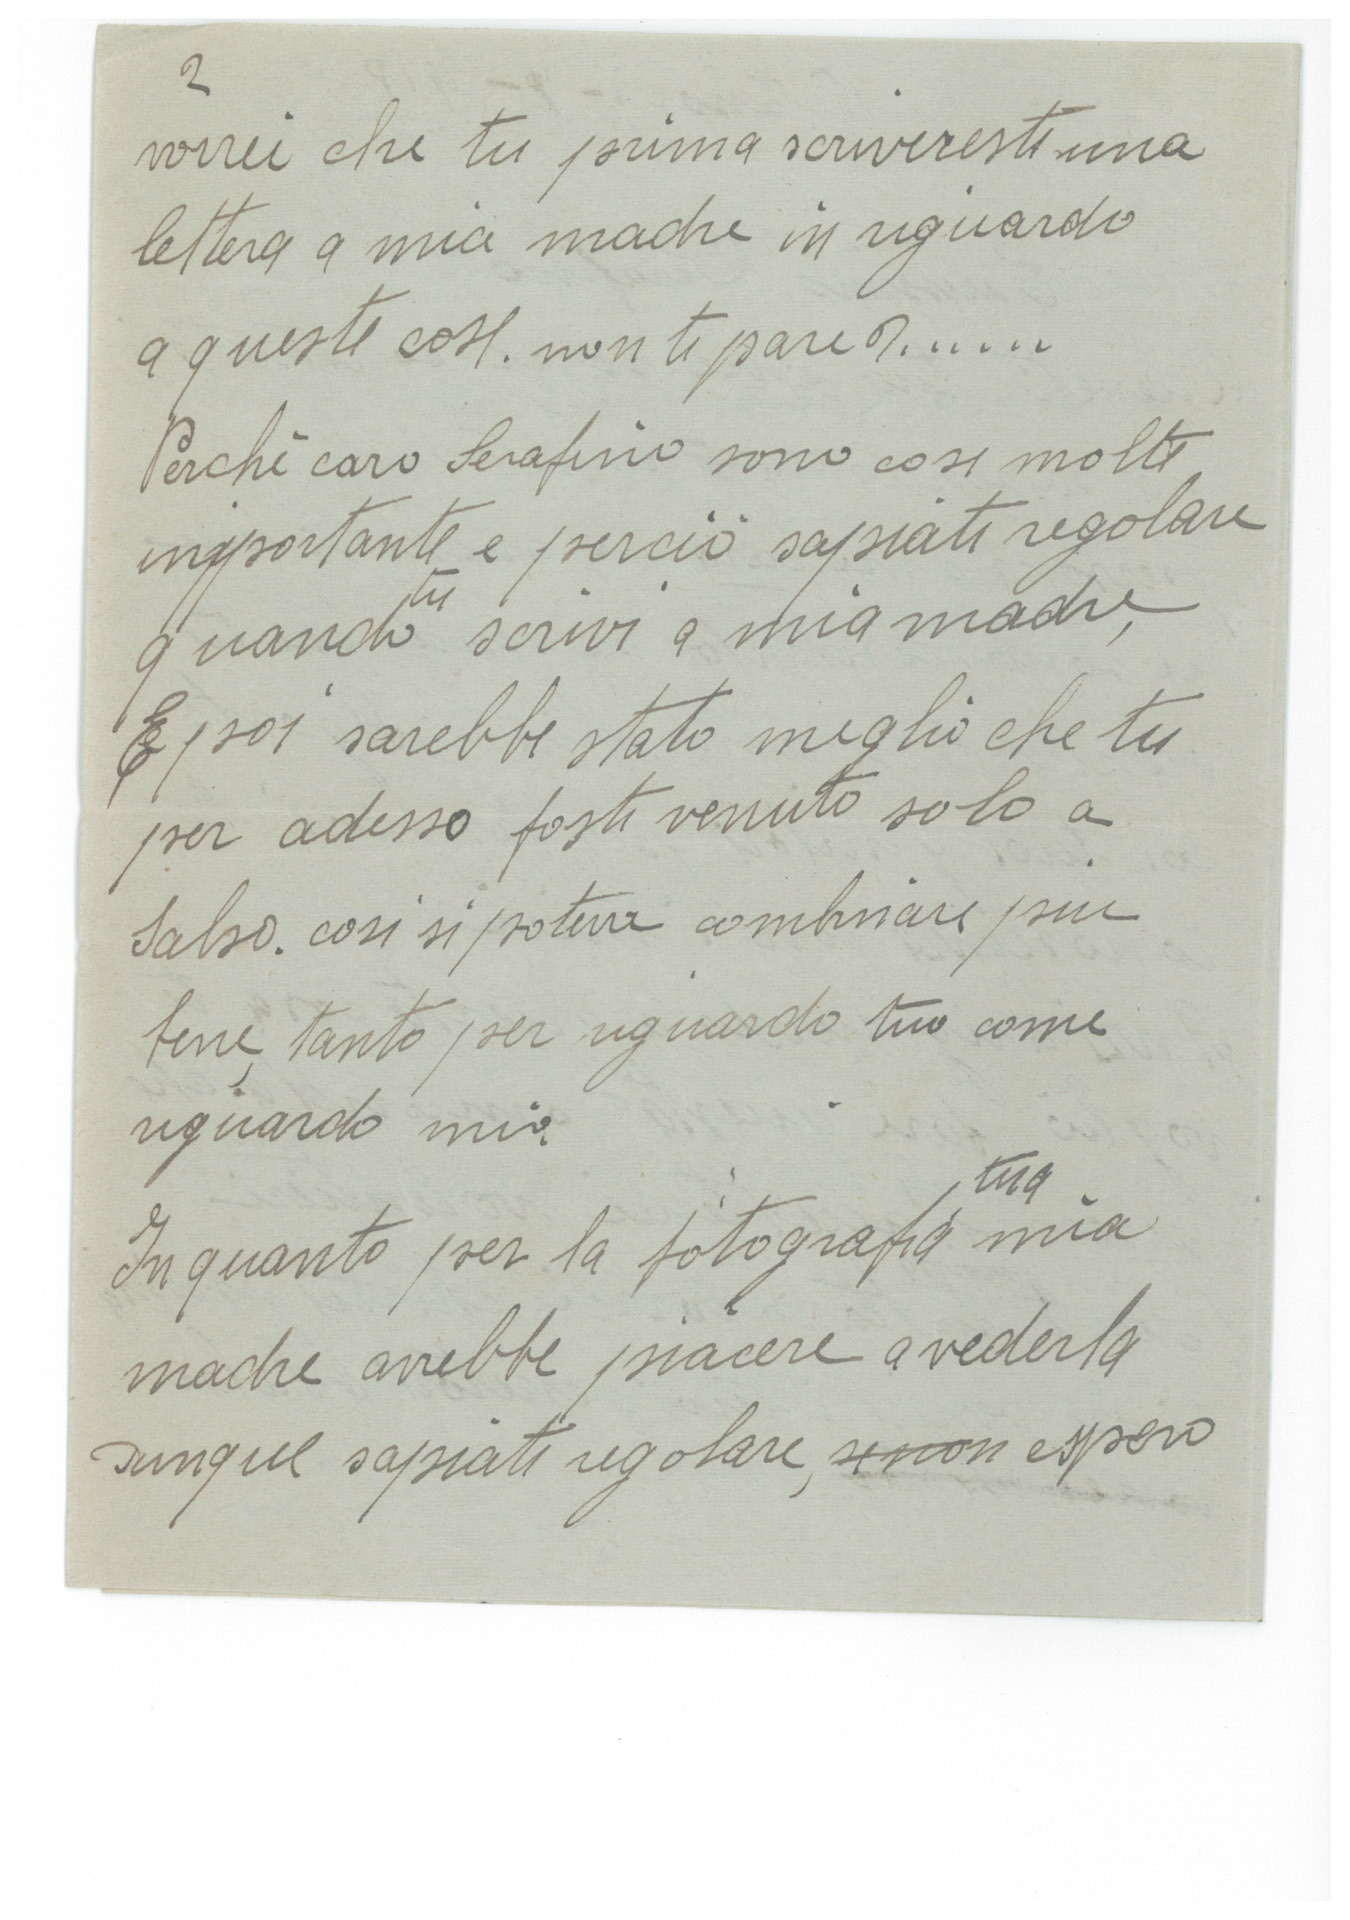 2
vorrei che tu prima scriveresti una
lettera a mia madre in riguardo
a queste cose. non ti pare?......
Perchè caro Serafino sono cose molte
importante e perciò sapiati regolare
quando tu scrivi a mia madre,
E poi sarebbe stato meglio che tu
per adesso fosti venuto solo a
Salso. cosi si poterra combinare piu
bene, tanto per riguardo tuo come
riguardo mio.
In quanto per la fotografia tua mia
madre avrebbe piacere a vederla
dunque sapiati regolare, se non espero